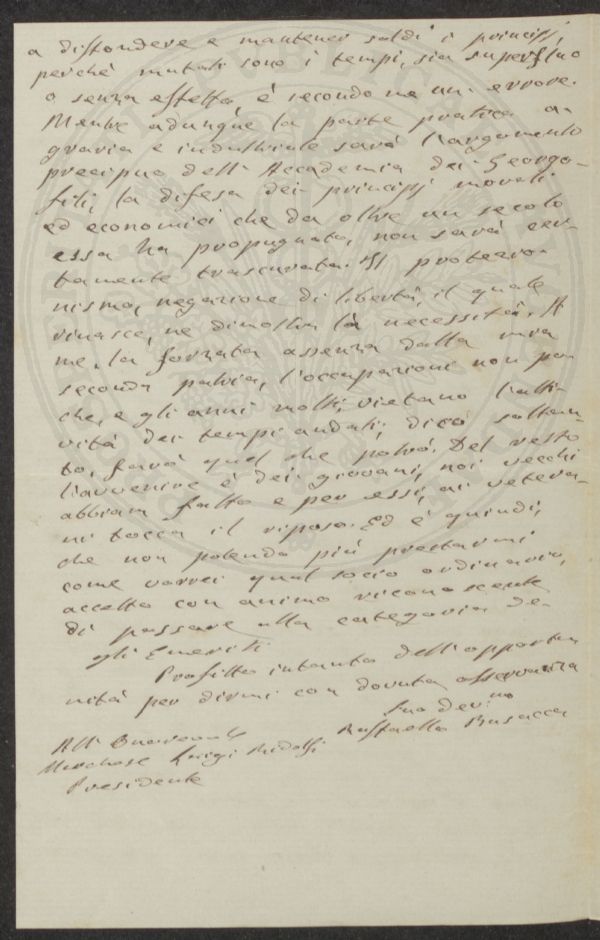 a diffondere e mantener saldi i principj,
perchè mutati sono i tempi, sia superfluo
o senza effetto, è secondo me un errore.
Mentre adunque la parte pratica a-
graria e industriale sarà l'argomento
precipuo dell'Accademia dei Georgo-
fili, la difesa dei principj morali
ed economici che da oltre un secolo
essa ha propugnato, non sarà cer-
tamente trascurata. Il protezio-
nismo, negazione di libertà, il quale
rinasce, ne dimostra la necessità. A
me, la forzata assenza dalla mia
seconda patria, l'occupazioni non po-
che, e gli anni molti, vietano l'atti-
vità dei tempi andati; dico soltan-
to, farò quel che potrò. Del resto
l'avvenire è dei giovani, noi vecchi
abbiam fatto e per essi, ai vetera-
ni tocca il riposo. Ed è quindi,
che non potendo più prestarmi
come vorrei qual socio ordinario,
accetto con animo riconoscente
di passare alla categoria de-
gli Emeriti.
Profitto intanto dell'opportu
nità per dirmi con dovuta osservanza
Suo dev:mo
Raffaello Busacca
All' Onorevole
Marchese Luigi Ridolfi
Presidente